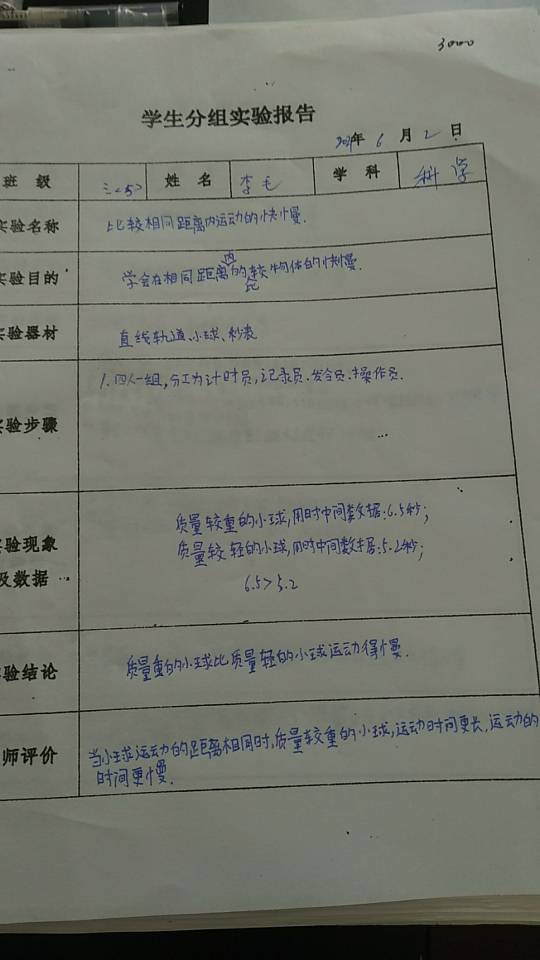 3000
学生分组实验报告
年 6 月 2 日
班 级 三<5> 姓 名 李毛 学 科 科学
实验名称 比较相同距离内运动的快慢.
实验目的 学会在相同距离内的比较物体的快慢.
实验器材 直线轨道、小球、秒表
实验步骤 1.四人一组,分工为计时员,记录员.发令员.操作员.
质量较重的小球,用时中间数据:6.5秒;
实验现象 质量较轻的小球,用时中间数据:5.2秒;
及数据 6.5>5.2
实验结论 质量重的小球比质量轻的小球运动得慢.
师评价 当小球运动的距离相同时,质量较重的小球,运动时间更长,运动的
时间更慢.